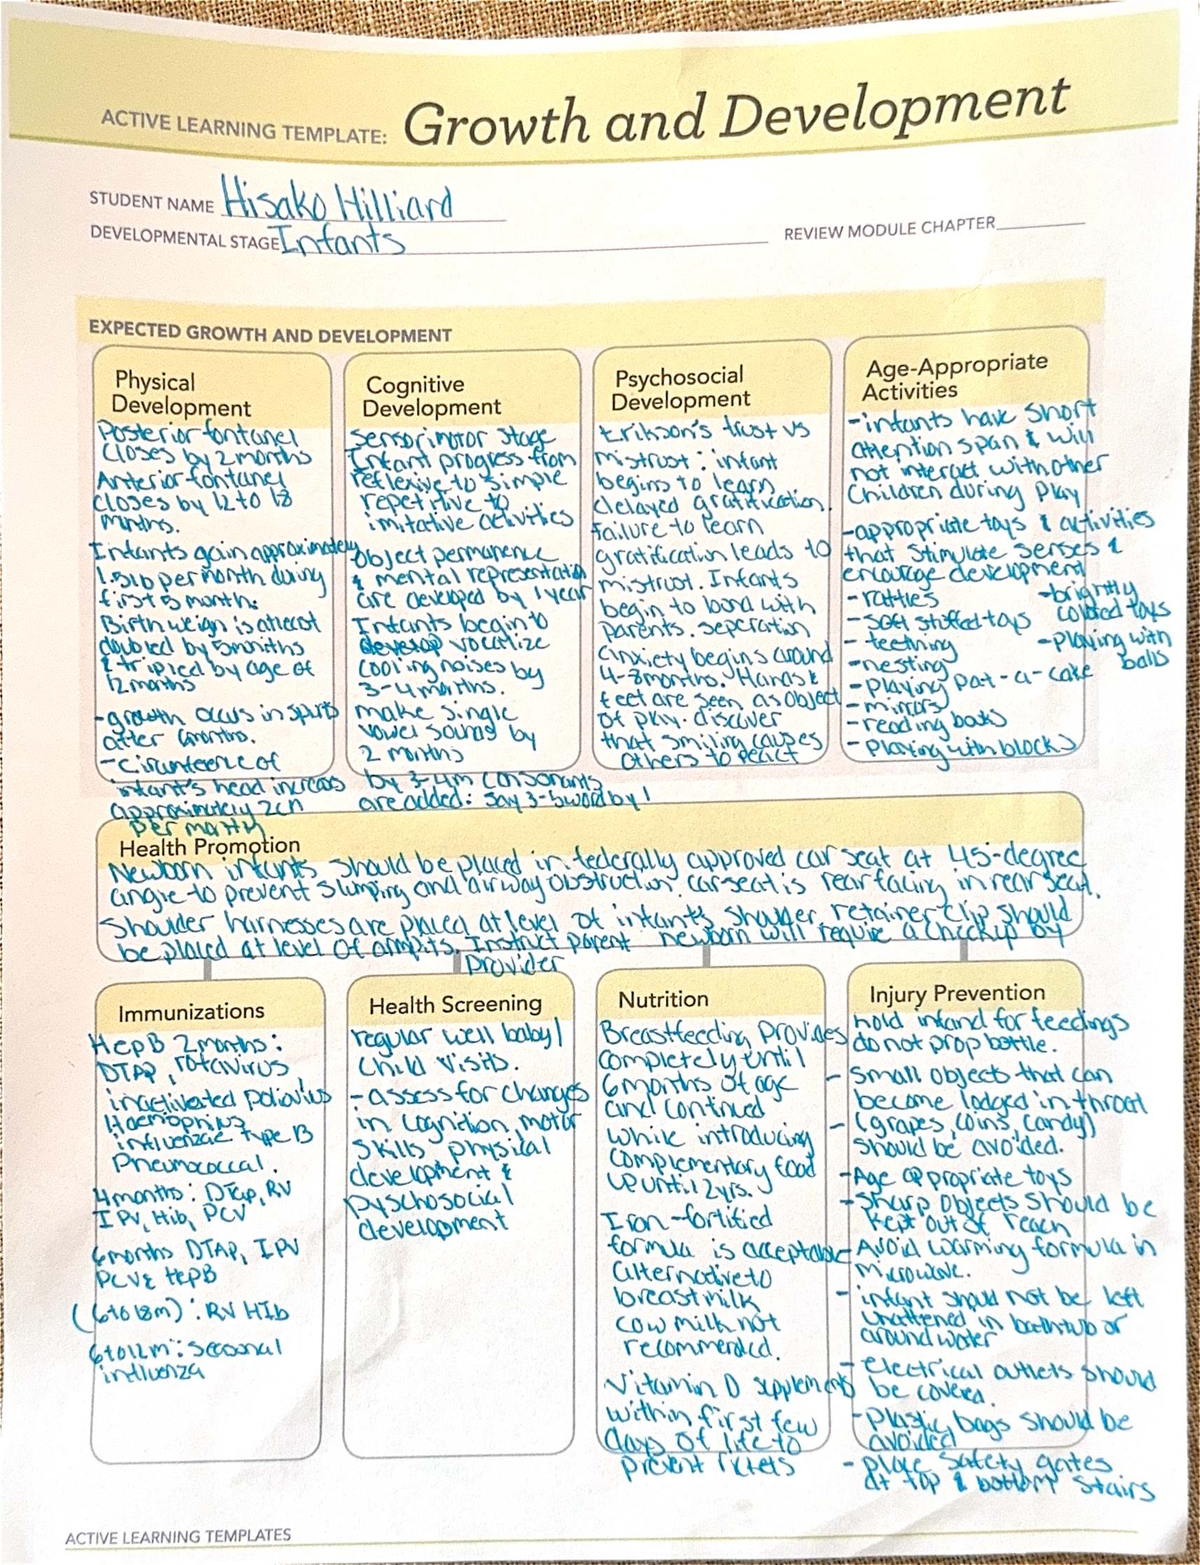 ACTIVE LEARNING TEMPLATE: Growth and Development
STUDENT NAME Hisako Hilliard
DEVELOPMENTAL STAGE Infants
REVIEW MODULE CHAPTER
EXPECTED GROWTH AND DEVELOPMENT
Physical
Development
Posterior fontanel
closes by 2 months
Anterior fontanel
closes by 12 to 18
months.
Infants gain approximately
1.5lb per month during
first 5 month.
Birth weign is atleast
doubled by 5 months
& tripled by age of
12 months
-growth occus in spurts
after 6months.
- circumference of
infant's head increas
approximately 2cm
per month
Cognitive
Development
Sensorimotor stage
Infant progress from
reflexive to simple
repetitive to
imitative activities
object permanence
& mental representation
are developed by 1 year
Infants begin to
develop vocalize
cooling noises by
3-4 months.
make single
vowel sounds by
2 months
by 3-4m consonants
are added: say 3-5 word by 1
Psychosocial
Development
Erikson's trust vs
mistrust: infant
begins to learn
delayed gratification.
failure to learn
gratification leads to
mistrust. Infants
begin to bond with
parents. seperation
anxiety begins around
4-8months. Hands &
feet are seen as object
of play. discover
that smiling causes
others to react
Age-Appropriate
Activities
-infants have short
attention span & will
not interact with other
children during play
-appropriate toys & activities
that stimulate senses &
encourage development
- rattles
- soft stuffed toys
- teething
-nesting
-playing pat-a-cake
- mirrors
- reading books
- playing with blocks
-brightly
colored toys
-playing with
balls
Health Promotion
Newborn infants should be placed in federally approved car seat at 45-degree
angle to prevent slumping and airway obstruction. car seat is rear facing in rear seat.
Shoulder harnesses are placed at level of infants shoulder. retainer clip should
be placed at level of armpits. Instruct parent newborn will require a checkup by
provider
Immunizations
HepB 2months:
DTAP, rotavirus
inactivated poliovirus
Haemophilus
influenzae type B
Pneumococcal.
4months: DTap, RV
IPV, Hib, PCV
6months DTAP, IPV
PCV & HepB
(6to18m): RV HIb
6to12m: Seasonal
influenza
Health Screening
regular well baby/
child visits.
-assess for changes
in cognition, motor
skills physical
development &
pyschosocial
development
Nutrition
Breastfeeding provides
completely until
6 months of age
and continued
while introducing
complementary food
up until 2yrs.
Iron-fortified
formula is acceptable
alternative to
breastmilk
cow milk not
recommended.
Vitamin D supplements
within first few
days of life to
prevent rickets
Injury Prevention
hold infand for feedings
do not prop bottle.
- small objects that can
become lodged in throat
- (grapes, coins, candy)
should be avoided.
-Age appropriate toys
- Sharp objects should be
kept out of reach
Avoid warming formula in
microwave.
- infant should not be left
unattened in bathtub or
around water
- electrical outlets should
be covered.
- plastic bags should be
avoided
- place safety gates
at top & bottom stairs
ACTIVE LEARNING TEMPLATES